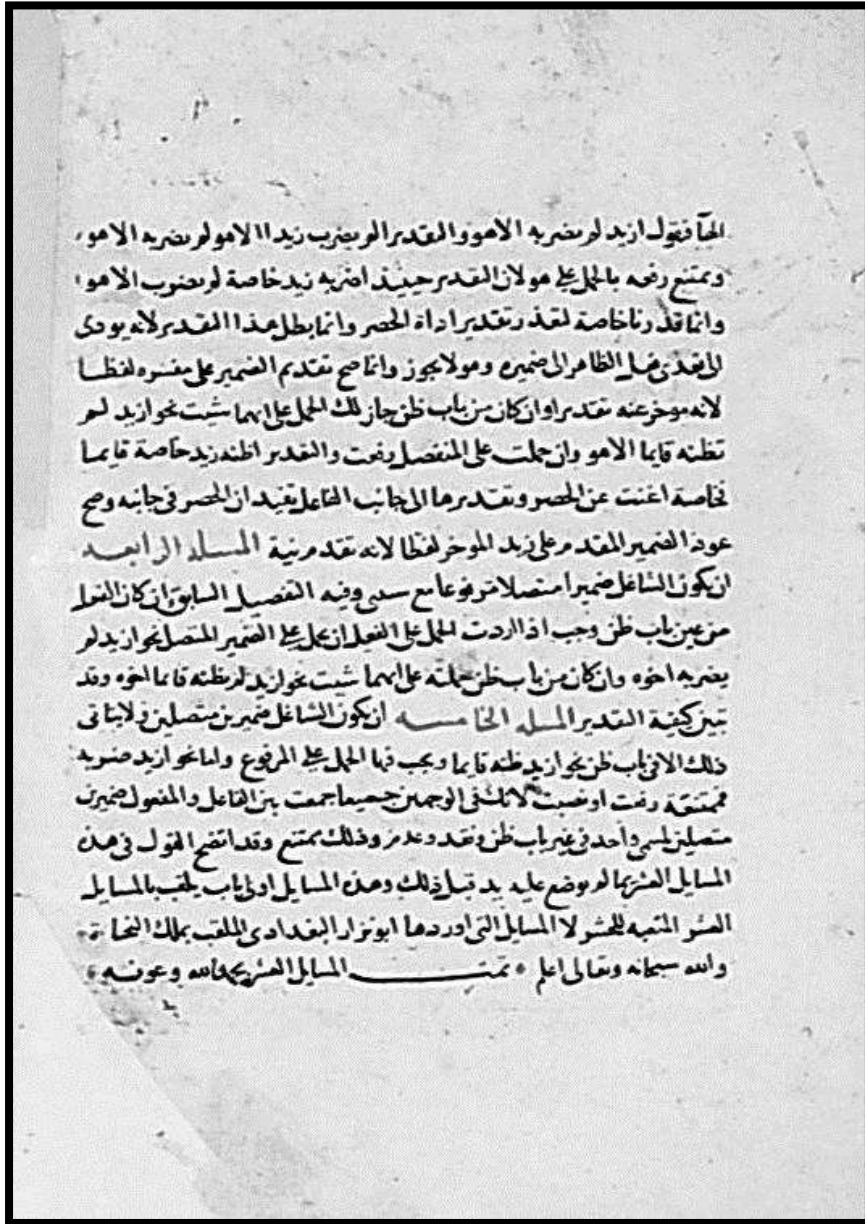 الجآ فتقول ازيد لم يضربه الا هو والتقدير الم يضرب زيدا الا هو لم يضربه الا هو
ويمتنع رفعه بالحمل على هو لان التقدير حينيذ اضربه زيد خاصة لم يضرب الا هو
وانما قدرنا خاصة لتعذر تقدير اداة الحصر وانما بطل هذا التقدير لانه يودى
الى تعدى فعل الظاهر الى ضميره وهو لا يجوز وانما صح تقديم الضمير على مفسره لفظا
لانه موخر عنه تقديرا وان كان من باب ظن جاز لك الحمل على ايهما شيت نحو ازيد لم
تظنه قايما الا هو وان حملت على المنفصل رفعت والتقدير اظنه زيد خاصة قايما
فخاصة اغنت عن الحصر وتقديرها الى جانب الفاعل تفيد ان الحصر فى جانبه وصح
عود الضمير المقدم على زيد الموخر لفظا لانه تقدم رتبة المسله الرابعه
ان يكون الشاغل ضميرا متصلا مرفوعا مع سببى وفيه التفصيل السابق ان كان الفعل
من غير باب ظن وجب اذا اردت الحمل على الفعل ان يحمل على الضمير المتصل نحو ازيد لم
يضربه اخوه وان كان من باب ظن حملته على ايهما شيت نحو ازيد لم يظنه قايما اخوه وقد
تبين كيفية التقدير المسله الخامسه ان يكون الشاغل ضميرين متصلين ولا يتاتى
ذلك الا فى باب ظن نحو ازيد ظنه قايما ويجب فيها الحمل على المرفوع واما نحو ازيد ضربه
فممتنعة رفعت او نصبت لانك فى الوجهين جميعا جمعت بين الفاعل والمفعول ضميرين
متصلين لمسمى واحد فى غير باب ظن وفقد وعدم وذلك ممتنع وقد اتضح القول فى هذه
المسايل العشر بما لم يوضع عليه يد قبل ذلك وهذه المسايل اولى باب يلقب بالمسايل
العشر المتعبه للحشر لا المسايل التى اوردها ابو نزار البغدادى الملقب بملك النحاة
والله سبحانه وتعالى اعلم تمت المسايل العشر بحمد الله وعونه